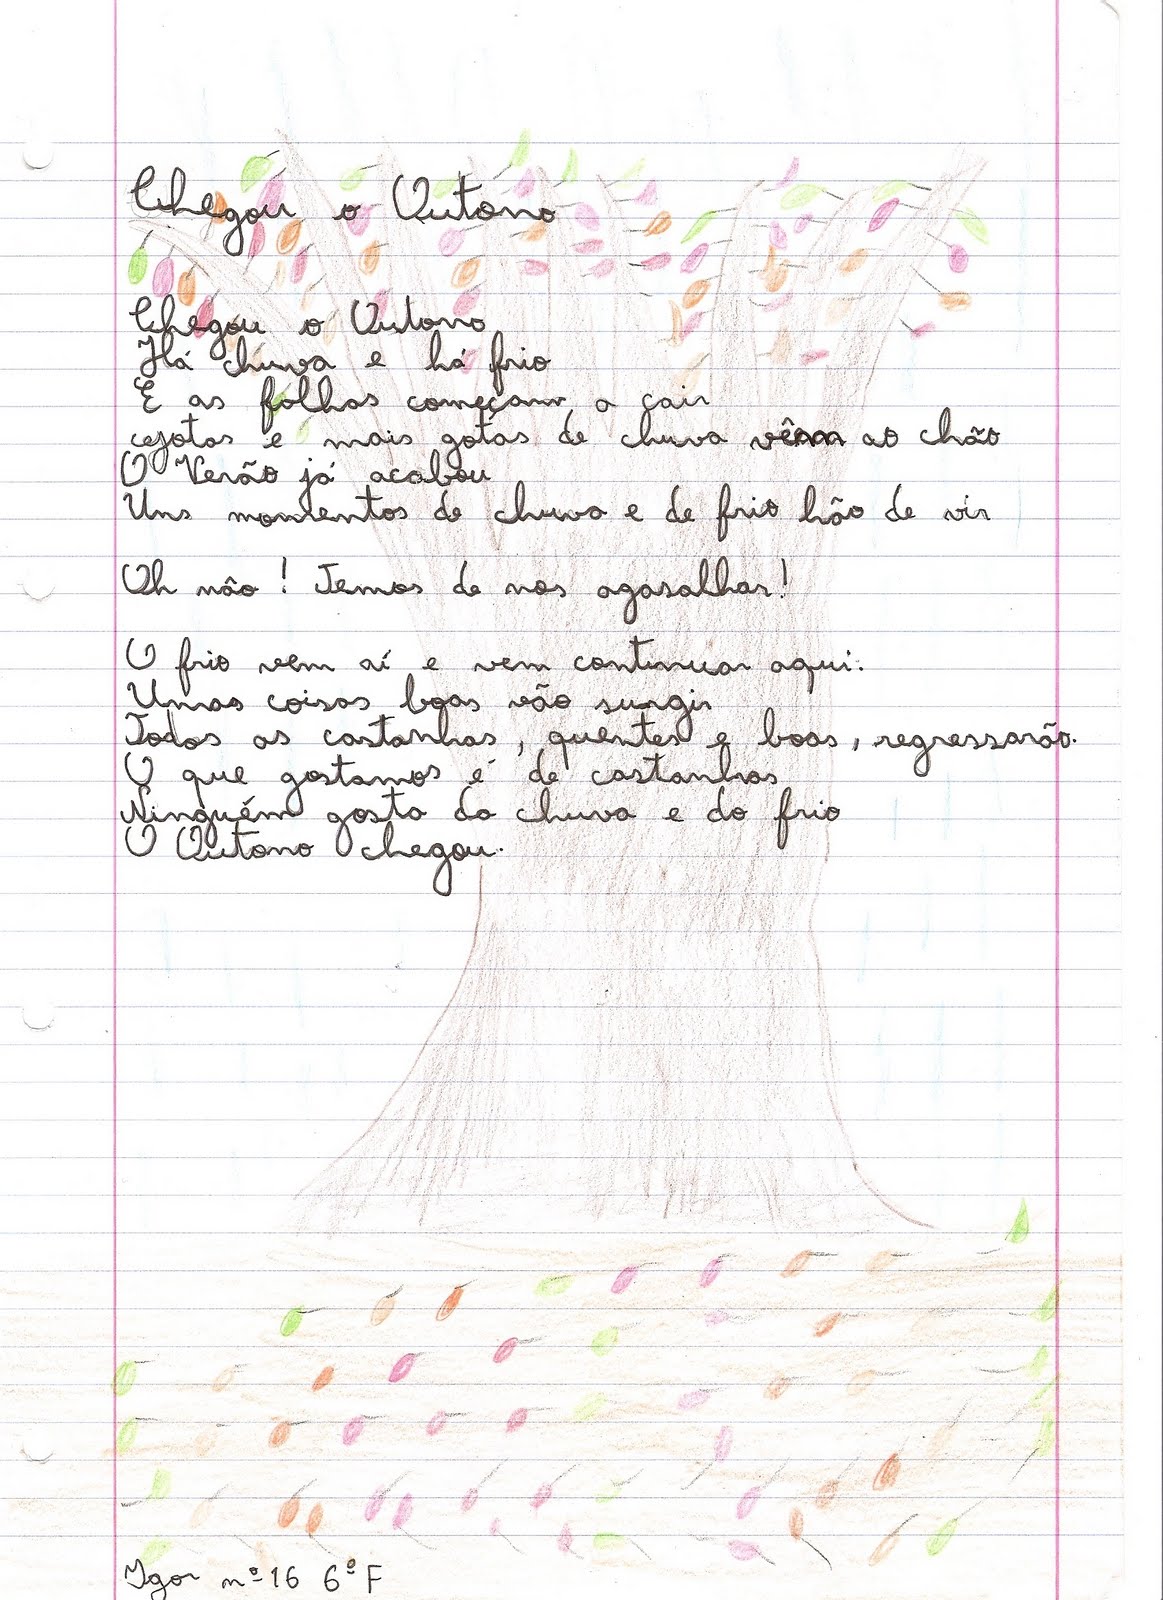 Chegou o Outono
Chegou o Outono
Há chuva e há frio
E as folhas começam a cair
Gotas e mais gotas de chuva vêm ao chão
O Verão já acabou
Uns momentos de chuva e de frio hão de vir
Oh não! Temos de nos agasalhar!
O frio vem aí e vem continuar aqui.
Umas coisas boas vão surgir
Todas as castanhas, quentes e boas, regressarão.
O que gostamos é de castanhas
Ninguém gosta da chuva e do frio
O Outono chegou.
Igor nº16 6ºF